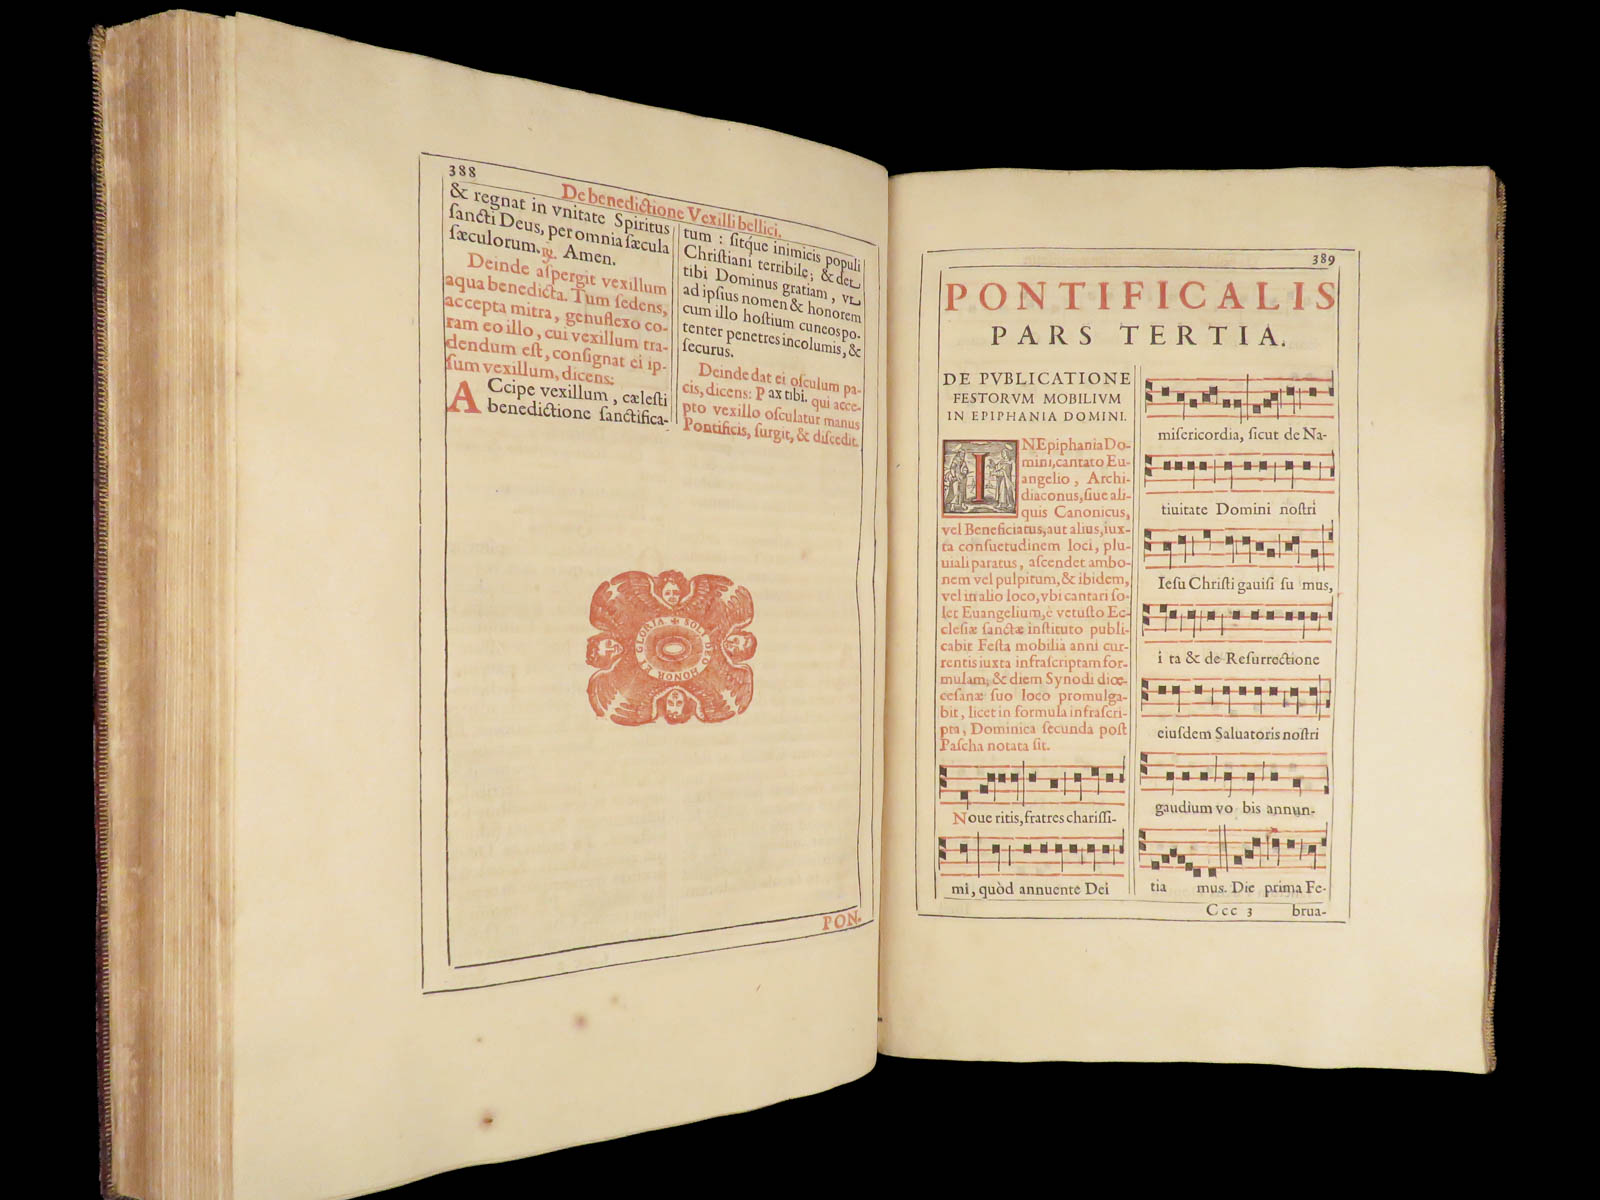 388
De benedictione Vexilli bellici.
& regnat in vnitate Spiritus
ſancti Deus, per omnia ſæcula
ſæculorum. ℟. Amen.
Deinde aſpergit vexillum
aqua benedicta. Tum ſedens,
accepta mitra, genuflexo co-
ram eo illo, cui vexillum tra-
dendum eſt, conſignat ei ip-
ſum vexillum, dicens:
ACcipe vexillum, cæleſti
benedictione ſanctifica-
tum: ſitque inimicis populi
Chriſtiani terribile; & det
tibi Dominus gratiam, vt
ad ipſius nomen & honorem
cum illo hoſtium cuneos po-
tenter penetres incolumis, &
ſecurus.
Deinde dat ei oſculum pa-
cis, dicens: Pax tibi. qui acce-
pto vexillo oſculatur manus
Pontificis, ſurgit, & diſcedit.
✠ SOLI DEO HONOR ET GLORIA
PON-
389
PONTIFICALIS
PARS TERTIA.
DE PVBLICATIONE
FESTORVM MOBILIVM
IN EPIPHANIA DOMINI.
IN Epiphania Do-
mini, cantato Eu-
angelio, Archi-
diaconus, ſiue ali-
quis Canonicus,
vel Beneficiatus, aut alius, iux-
ta conſuetudinem loci, plu-
uiali paratus, aſcendet ambo-
nem vel pulpitum, & ibidem,
vel in alio loco, vbi cantari ſo-
let Euangelium, è vetuſto Ec-
cleſiæ ſanctæ inſtituto publi-
cabit Feſta mobilia anni cur-
rentis iuxta infraſcriptam for-
mulam; & diem Synodi diœ-
ceſanæ ſuo loco promulga-
bit, licet in formula infraſcri-
pta, Dominica ſecunda poſt
Paſcha notata ſit.
Noue ritis, fratres chariſſi-
mi, quòd annuente Dei
miſericordia, ſicut de Na-
tiuitate Domini noſtri
Ieſu Chriſti gauiſi ſu mus,
i ta & de Reſurrectione
eiuſdem Saluatoris noſtri
gaudium vo bis annun-
tia mus. Die prima Fe-
Ccc 3 brua-